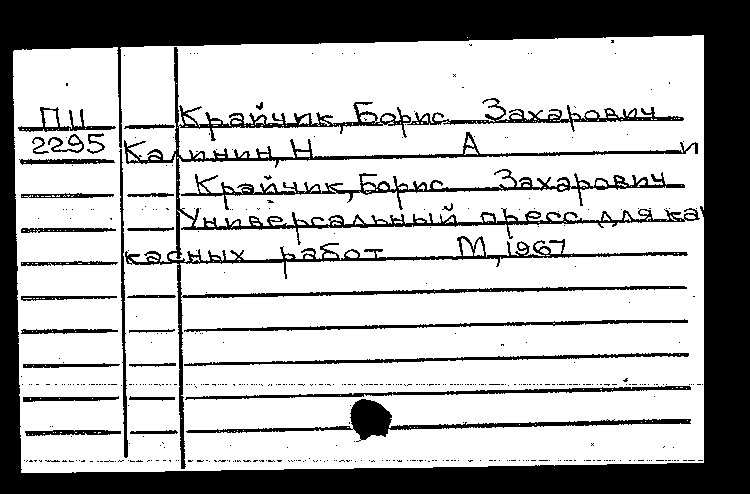 ПII Крайчик, Борис Захарович
2295 Калинин, Н А и
Крайчик, Борис Захарович
Универсальный пресс для ка
касных работ М, 1967